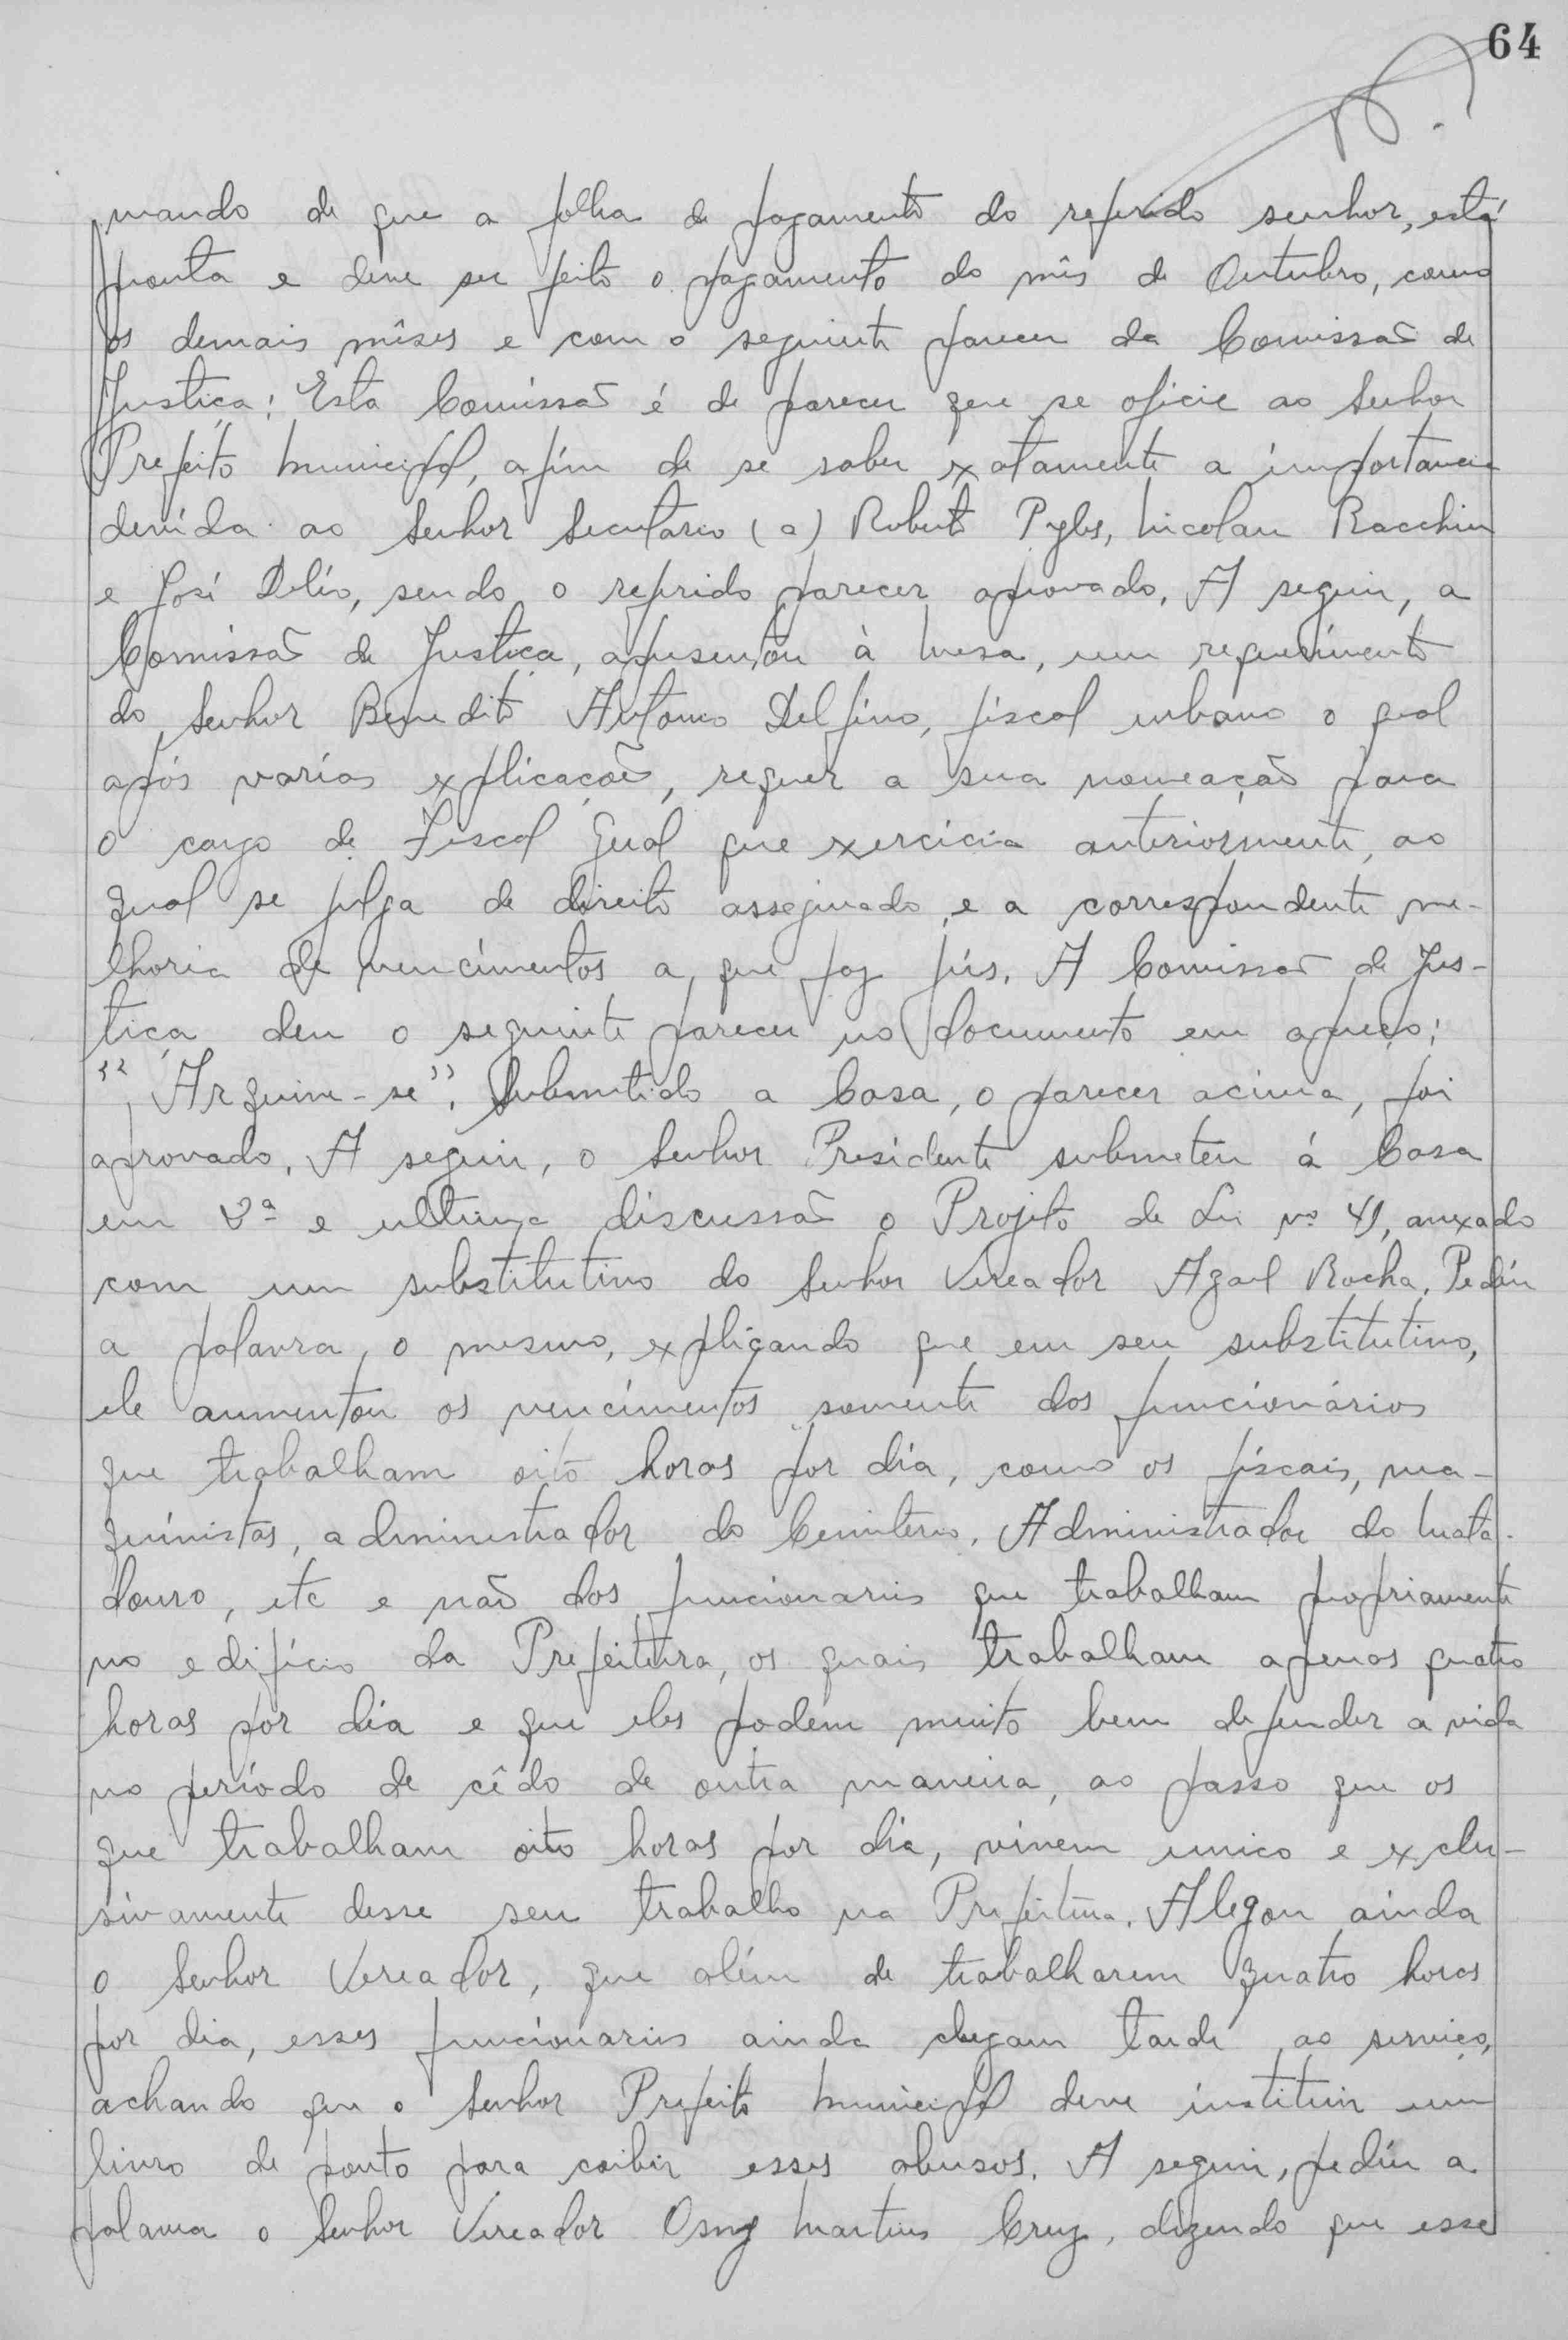 64
mando de que a folha de pagamento do referido senhor, está
pronta e deve ser feito o pagamento do mês de Outubro, como
os demais mêses e com o seguinte parecer da Comissão de
Justiça: Esta Comissão é de parecer que se oficie ao Senhor
Prefeito Municipal, afim de se saber exatamente a importancia
devida ao Senhor Secretario (a) Roberto Pyles, Nicolau Racchiu
e José Delío, sendo o referido parecer aprovado. A seguir, a
Comissão de Justiça, apresentou à Mesa, um requerimento
do Senhor Benedito Antonio Delfino, fiscal urbano o qual
após varias explicações, requer a sua nomeação para
o cargo de Fiscal Geral que exercicia anteriormente, ao
qual se julga de direito assegurado, e a correspondente me-
lhoria de vencimentos a que faz jús. A Comissão de Jus-
tiça deu o seguinte parecer no documento em apreço:
"Arquive-se". Submetido a Casa, o parecer acima, foi
aprovado. A seguir, o Senhor Presidente submeteu á Casa
em 2ª e ultima discussão o Projeto de Lei nº 41, anexado
com um substitutivo do Senhor Vereador Azael Rocha. Pedíu
a palavra, o mesmo, explicando que em seu substitutivo,
ele aumentou os vencimentos somente dos funcionários
que trabalham oito horas por dia, como os fiscais, ma-
quinistas, administrador do Cemiterio, Administrador do Mata-
douro, etc e não dos funcionarios que trabalham propriamente
no edificio da Prefeitura, os quais trabalham apenas quatro
horas por dia e que eles podem muito bem defender a vida
no período de cêdo de outra maneira, ao passo que os
que trabalham oito horas por dia, vivem unico e exclu-
sivamente desse seu trabalho na Prefeitura. Alegou ainda
o Senhor Vereador, que além de trabalharem quatro horas
por dia, esses funcionarios ainda chegam tarde ao serviço,
achando que o Senhor Prefeito Municipal deve instituir um
livro de ponto para coibir esses abusos. A seguir, pedíu a
palavra o Senhor Vereador Osny Martins Cruz, dizendo que esse